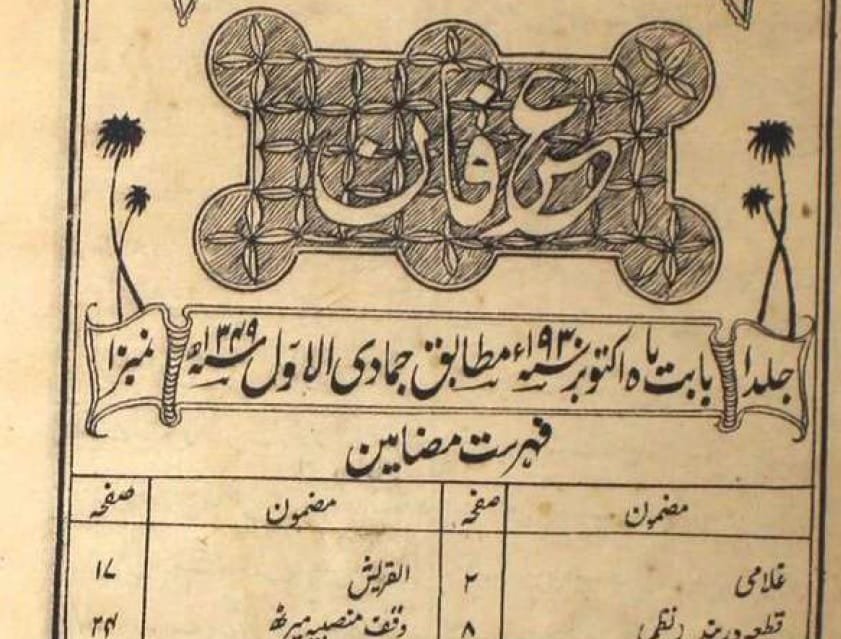 عرفان
جلد ۱ بابت ماہ اکتوبر سنہ ۱۹۳۰ء مطابق جمادی الاوّل سنہ ۱۳۴۹ھ نمبر ۱
فہرست مضامین
مضمون صفحہ مضمون صفحہ
غلامی ۲ القریش ۱۷
قطعہ (نظم) ۸ وقف منصبیہ میرٹھ ۲۴